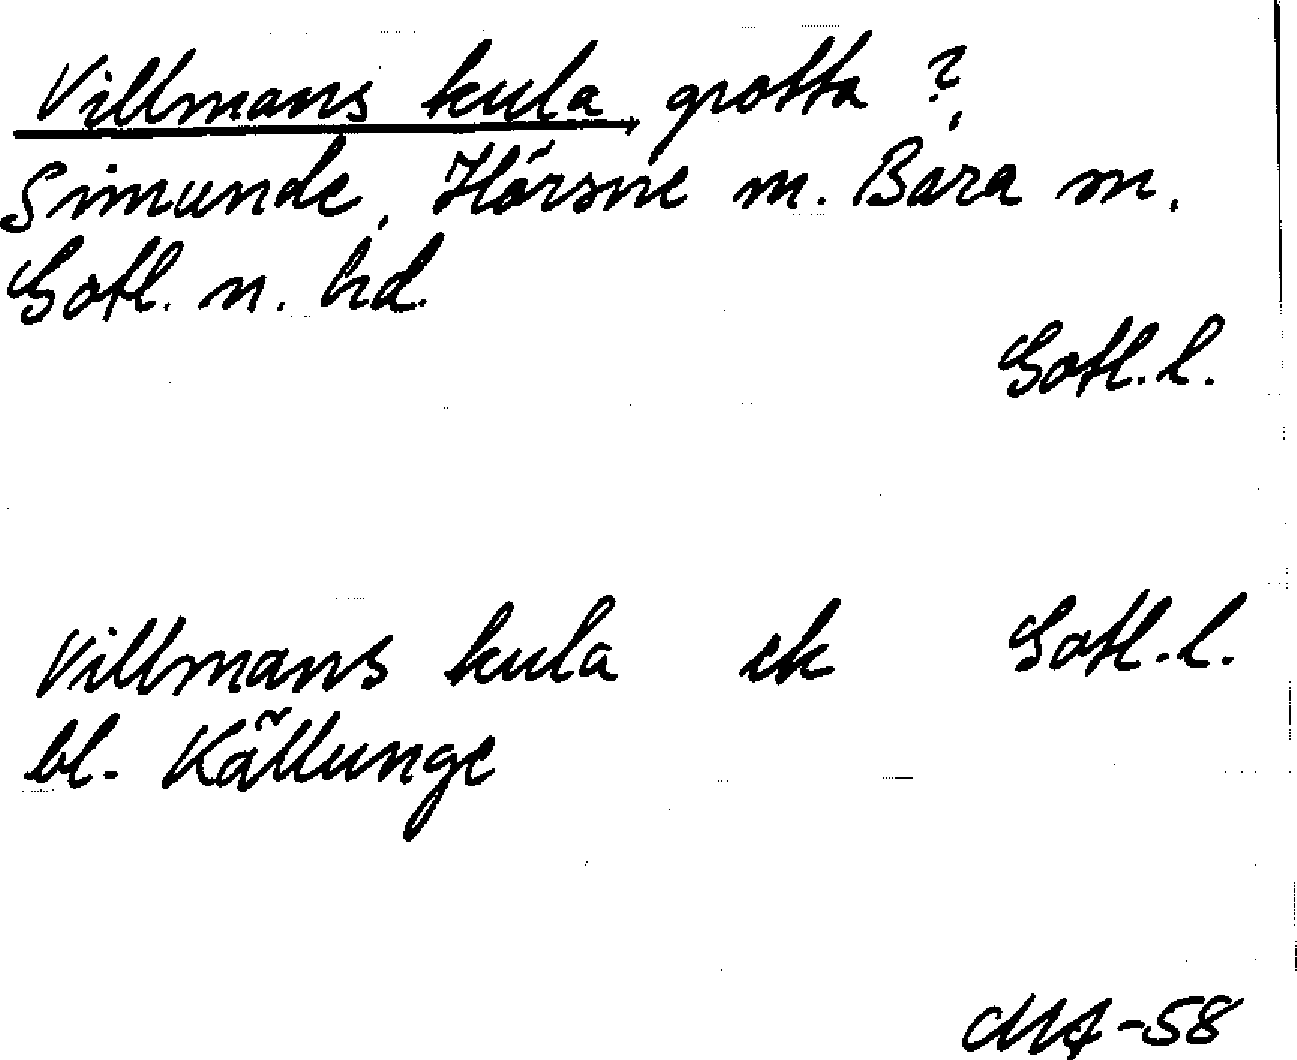 Villmans kula, grotta ?,
Simunde, Hörsne m. Bara sn.
Gotl. n. hd.
Gotl. l.
Villmans kula ek Gotl. l.
bl. Källunge
MA-58